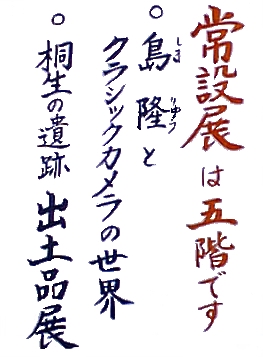 常設展は五階です
○島隆と
しま りゅう
クラシックカメラの世界
○桐生の遺跡 出土品展